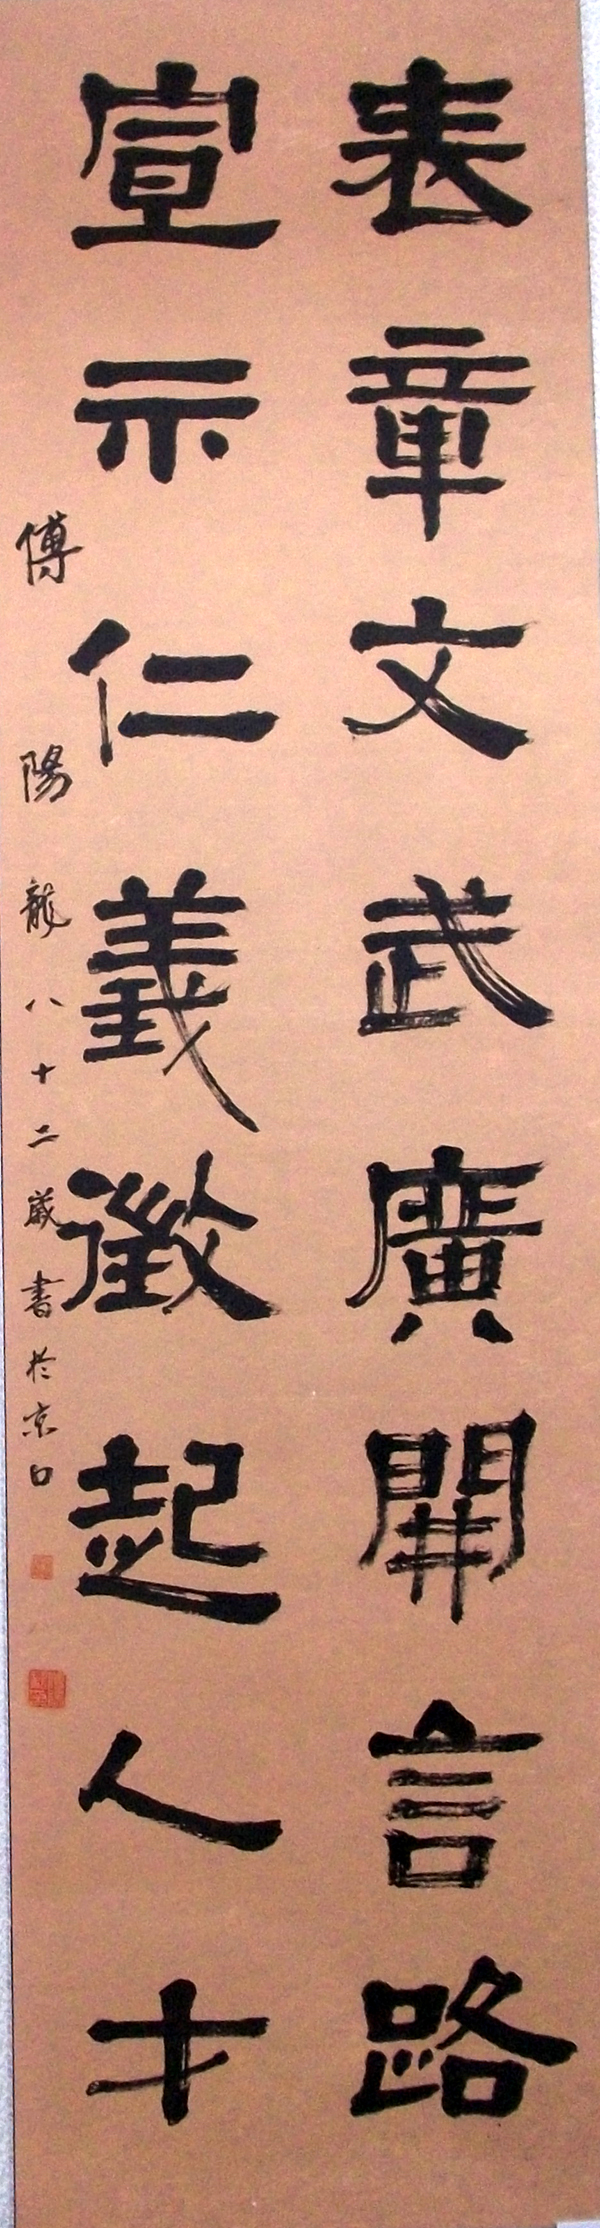 表章文武廣開言路
宣示仁義徵起人才
傅陽龍八十二歲書於京口